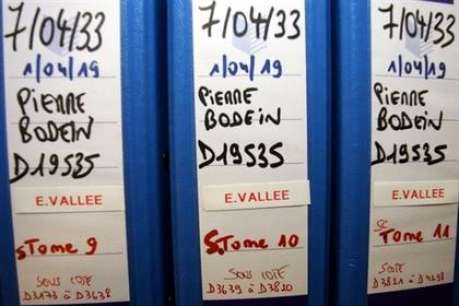 7/04/33
1/04/19
PIERRE
BODEIN
D19535
E.VALLEE
Tome 9
SOUS COTE
D3173 à D3638
7/04/33
1/04/19
PIERRE
BODEIN
D19535
E.VALLEE
Tome 10
SOUS COTE
D3639 à D3820
7/04/33
1/04/19
PIERRE
BODEIN
D19535
E.VALLEE
Tome 11
SOUS COTE
D3821 à